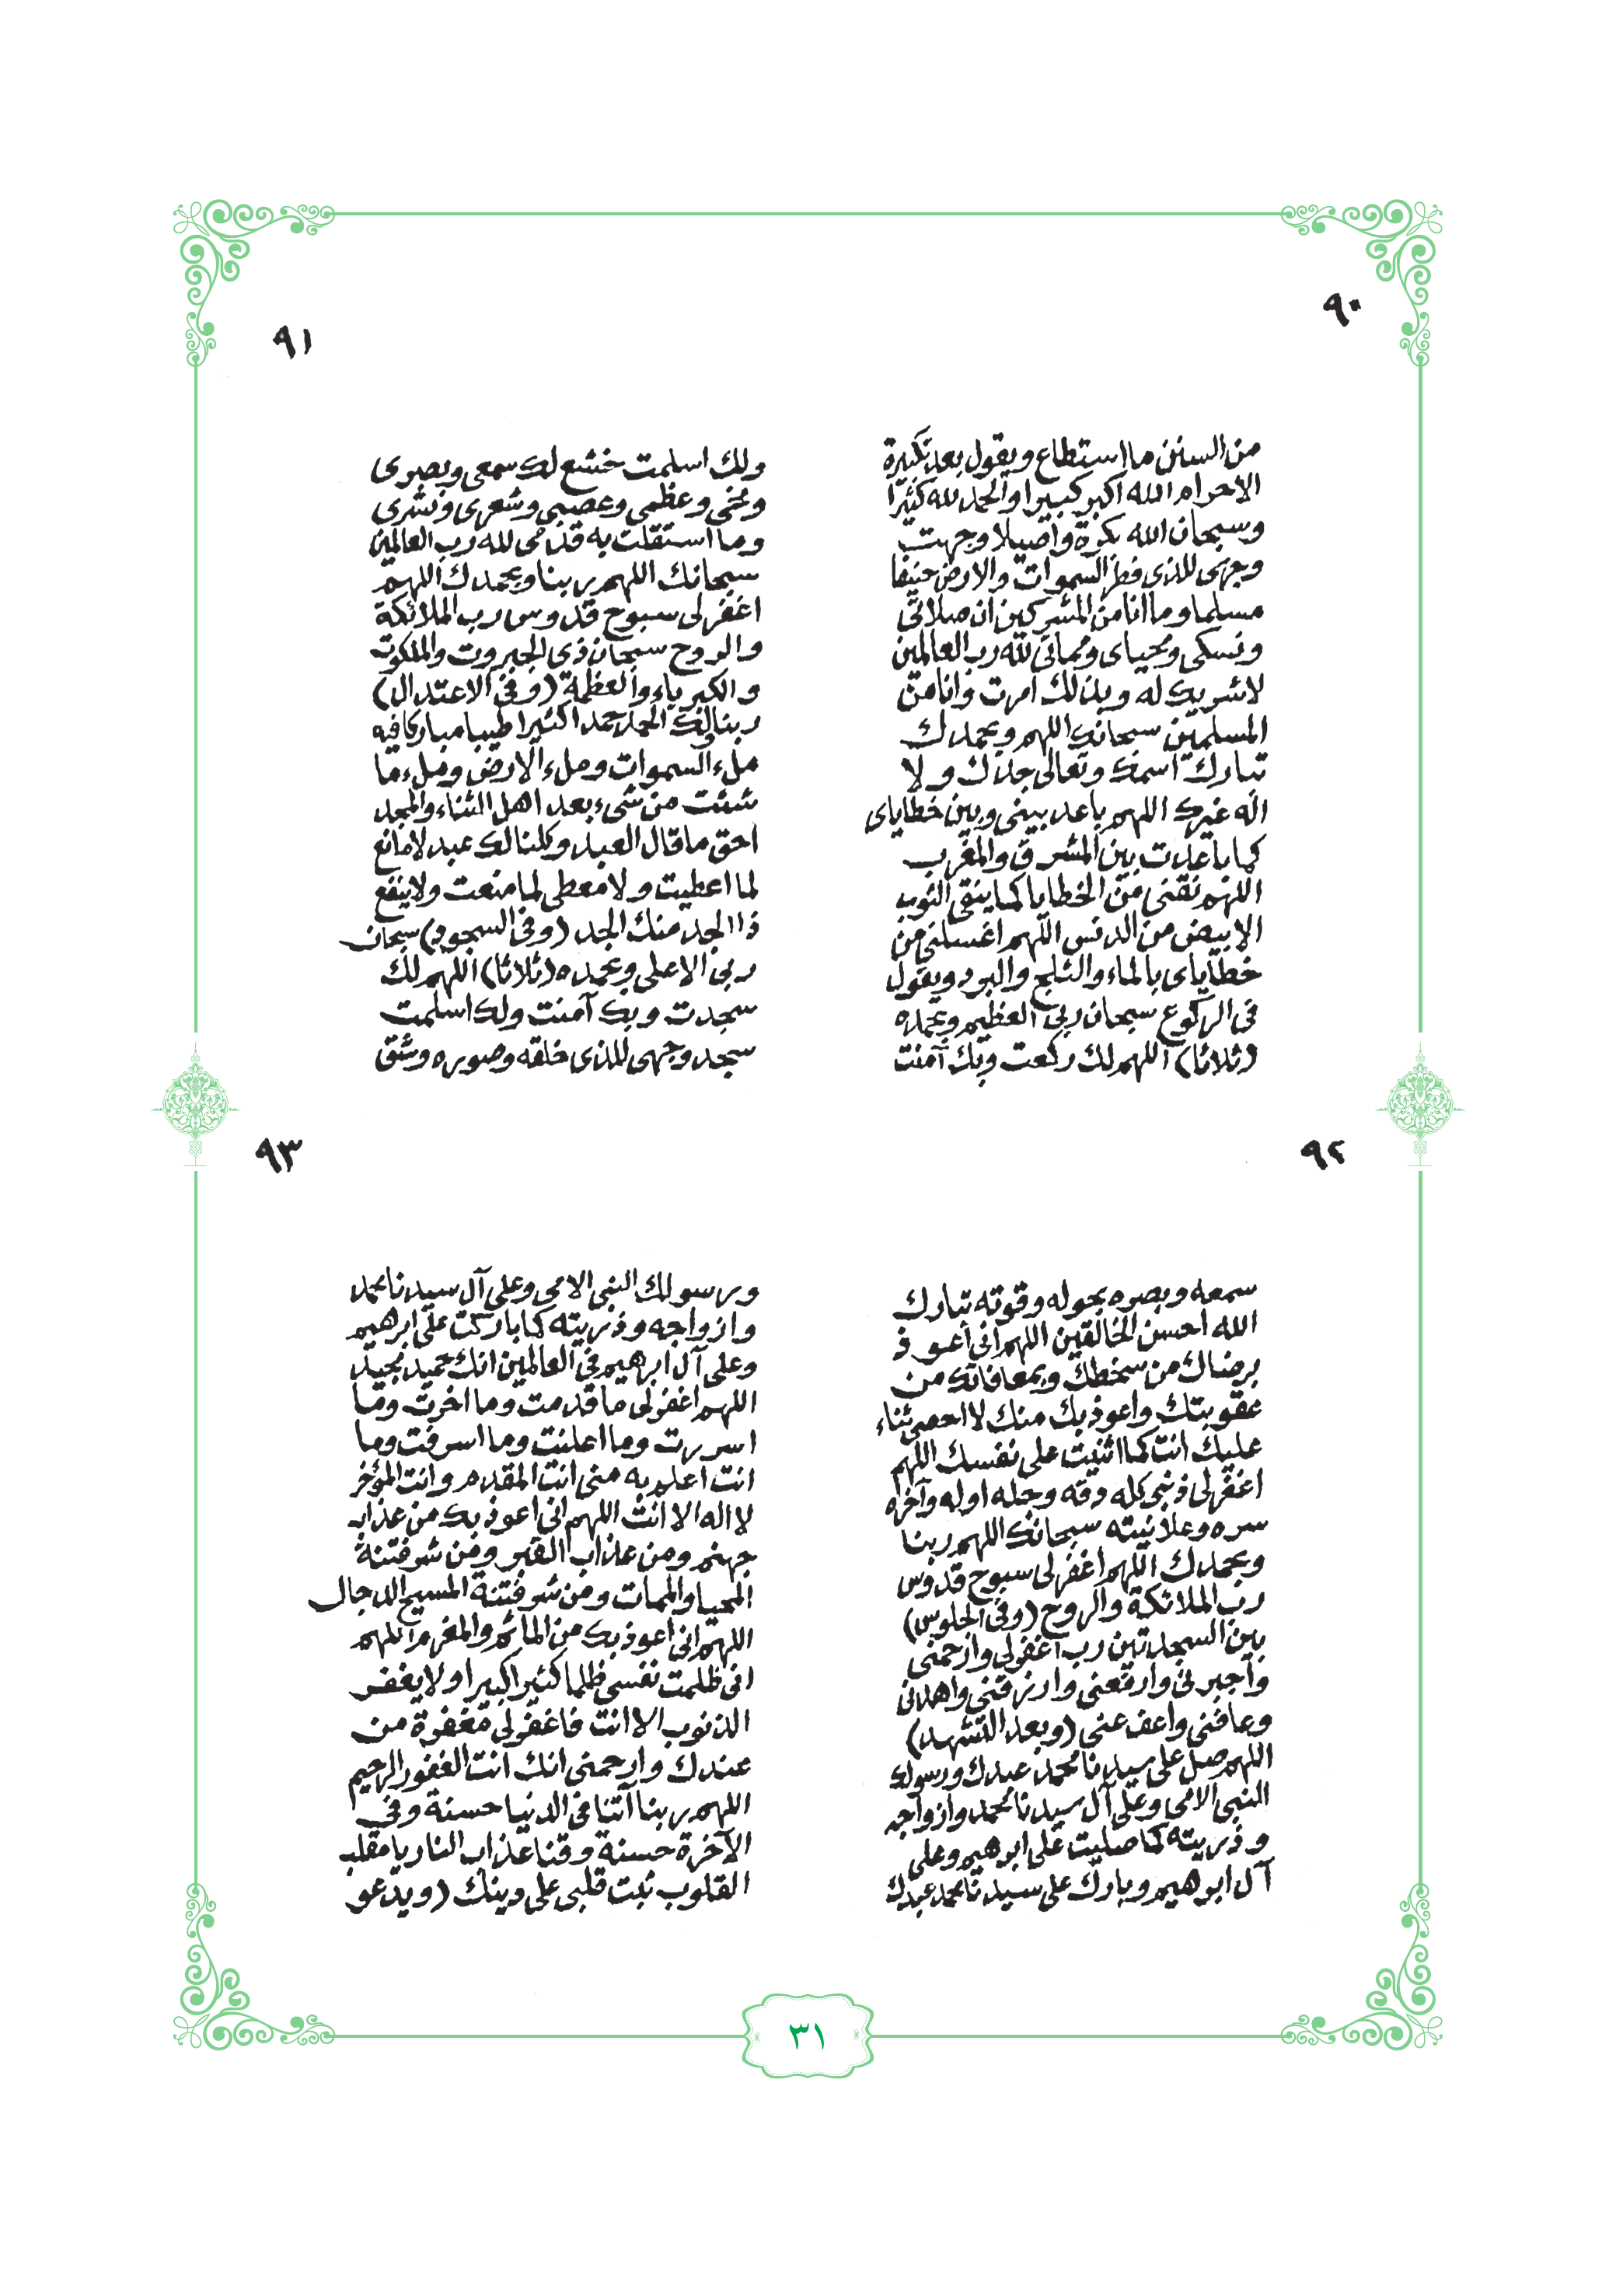 ٩٠
من السنن ما استطاع ويقول بعد تكبيرة
الاحرام الله اكبر كبيرا والحمد لله كثيرًا
وسبحان الله بكرة واصيلا وجهت
وجهى للذى فطر السموات والارض حنيفا
مسلما وما انا من المشركين ان صلاتى
ونسكى ومحياى ومماتى لله رب العالمين
لا شريك له وبذلك امرت وانا من
المسلمين سبحانك اللهم وبحمدك
تبارك اسمك وتعالى جدك ولا
اله غيرك اللهم باعد بينى وبين خطاياى
كما باعدت بين المشرق والمغرب
اللهم نقنى من الخطايا كما ينقى الثوب
الابيض من الدنس اللهم اغسلنى من
خطاياى بالماء والثلج والبرد ويقول
فى الركوع سبحان ربى العظيم وبحمده
(ثلاثا) اللهم لك ركعت وبك آمنت
٩١
ولك اسلمت خشع لك سمعى وبصرى
ومخى وعظمى وعصبى وشعرى وبشرى
وما استقلت به قدمى لله رب العالمين
سبحانك اللهم ربنا وبحمدك اللهم
اغفر لى سبوح قدوس رب الملائكة
والروح سبحان ذى الجبروت والملكوت
والكبرياء والعظمة (وفى الاعتدال)
ربنا ولك الحمد حمدا كثيرا طيبا مباركا فيه
ملء السموات وملء الارض وملء ما
شئت من شىء بعد اهل الثناء والمجد
احق ما قال العبد وكلنا لك عبد لا مانع
لما اعطيت ولا معطى لما منعت ولا ينفع
ذا الجد منك الجد (وفى السجود) سبحان
ربى الاعلى وبحمده (ثلاثا) اللهم لك
سجدت وبك آمنت ولك اسلمت
سجد وجهى للذى خلقه وصوره وشق
٩٢
سمعه وبصره بحوله وقوته تبارك
الله احسن الخالقين اللهم انى أعوذ
برضاك من سخطك وبمعافاتك من
عقوبتك واعوذ بك منك لا احصى ثناء
عليك انت كما اثنيت على نفسك اللهم
اغفر لى ذنبى كله دقه وجله اوله وآخره
سره وعلانيته سبحانك اللهم ربنا
وبحمدك اللهم اغفر لى سبوح قدوس
رب الملائكة والروح (وفى الجلوس)
بين السجدتين رب اغفر لى وارحمنى
واجبرنى وارفعنى وارزقنى واهدنى
وعافنى واعف عنى (وبعد التشهد)
اللهم صل على سيدنا محمد عبدك ورسولك
النبى الامى وعلى آل سيدنا محمد وازواجه
وذريته كما صليت على ابرهيم وعلى
آل ابرهيم وبارك على سيدنا محمد عبدك
٩٣
ورسولك النبى الامى وعلى آل سيدنا محمد
وازواجه وذريته كما باركت على ابرهيم
وعلى آل ابرهيم فى العالمين انك حميد مجيد
اللهم اغفر لى ما قدمت وما اخرت وما
اسررت وما اعلنت وما اسرفت وما
انت اعلم به منى انت المقدم وانت المؤخر
لا اله الا انت اللهم انى اعوذ بك من عذاب
جهنم ومن عذاب القبر ومن شر فتنة
المحيا والممات ومن شر فتنة المسيح الدجال
اللهم انى اعوذ بك من المأثم والمغرم اللهم
انى ظلمت نفسى ظلما كثيرا كبيرا ولا يغفر
الذنوب الا انت فاغفر لى مغفرة من
عندك وارحمنى انك انت الغفور الرحيم
اللهم ربنا آتنا فى الدنيا حسنة وفى
الآخرة حسنة وقنا عذاب النار يا مقلب
القلوب ثبت قلبى على دينك (ويدعو
٣١